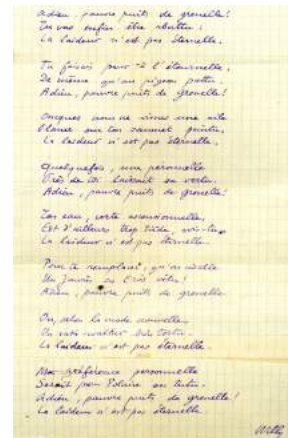 Adieu, pauvre puits de grenelle!
Tu vas enfin être abattu:
La laideur n'est pas éternelle.
Tu faisais peur à l'étournelle,
De même qu'au pigeon pattu.
Adieu, pauvre puits de grenelle!
Oncques nous ne vîmes une aile
Planer sur ton sommet pointu.
La laideur n'est pas éternelle.
Quelquefois, une péronnelle
Près de toi laissait sa vertu.
Adieu, pauvre puits de grenelle!
Ton eau, verte
Est d'ailleurs trop tiède, vois-tu
La laideur n'est pas éternelle.
Pour te remplacer, qu'on
Un
Adieu, pauvre puits de grenelle
Ou, selon la mode nouvelle
Un
La laideur n'est pas éternelle.
Ma préférence personnelle
Serait pour Polaire en tutu.
Adieu, pauvre puits de grenelle!
La laideur n'est pas éternelle
Willy